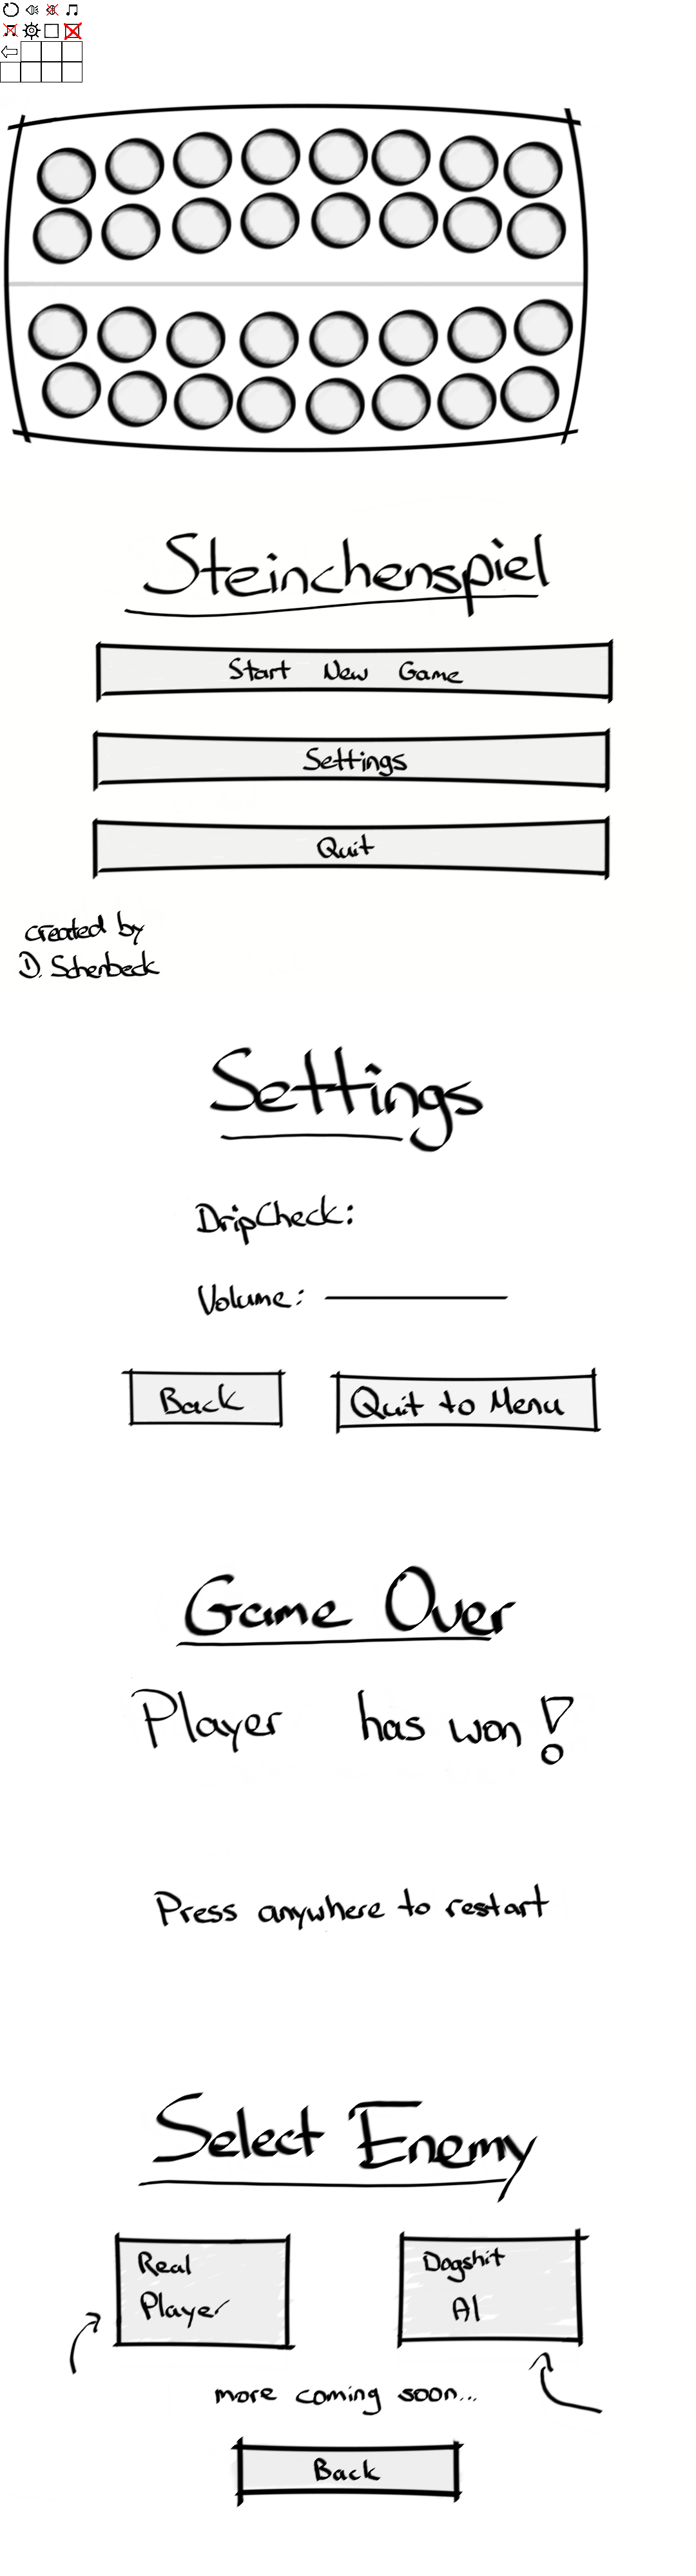 Steinchenspiel
Start New Game
Settings
Quit
created by
D. Schenbeck
Settings
DripCheck:
Volume:
Back
Quit to Menu
Game Over
Player has won!
Press anywhere to restart
Select Enemy
Real
Player
Dogshit
AI
more coming soon...
Back